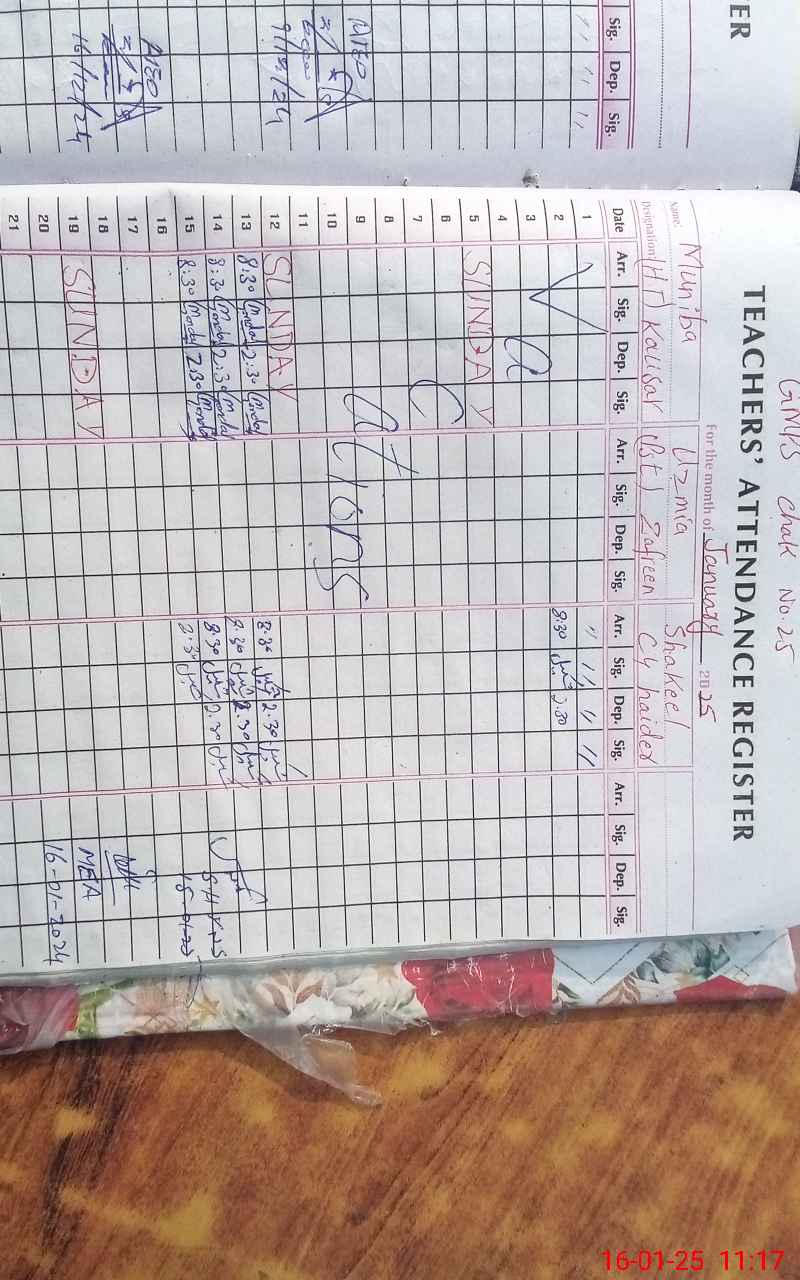 GMPS Chak No. 25
TEACHERS' ATTENDANCE REGISTER
For the month of January 2025
Name: Muniba Uzmia Shakeel
Designation: (HT) Kausar (Pst) Zafreen C4 haider
Date Arr. Sig. Dep. Sig. Arr. Sig. Dep. Sig. Arr. Sig. Dep. Sig. Arr. Sig. Dep. Sig.
1 " " " "
2 8:30 2.30
3
4
5 SUNDAY
6
7
8
9
10
11
Vacations
12 SUNDAY 8:30 2.30
13 8:30 2:30 8:30 2.30
14 8:30 2:30 8:30 2.30
15 8:30 2:30 2:30
15-01-25
16
17
18 MEA
19 SUNDAY
20 16-01-2024
21
TER
Sig. Dep. Sig.
" " "
AEO
9/12/24
AEO
16/12/24
16-01-25 11:17